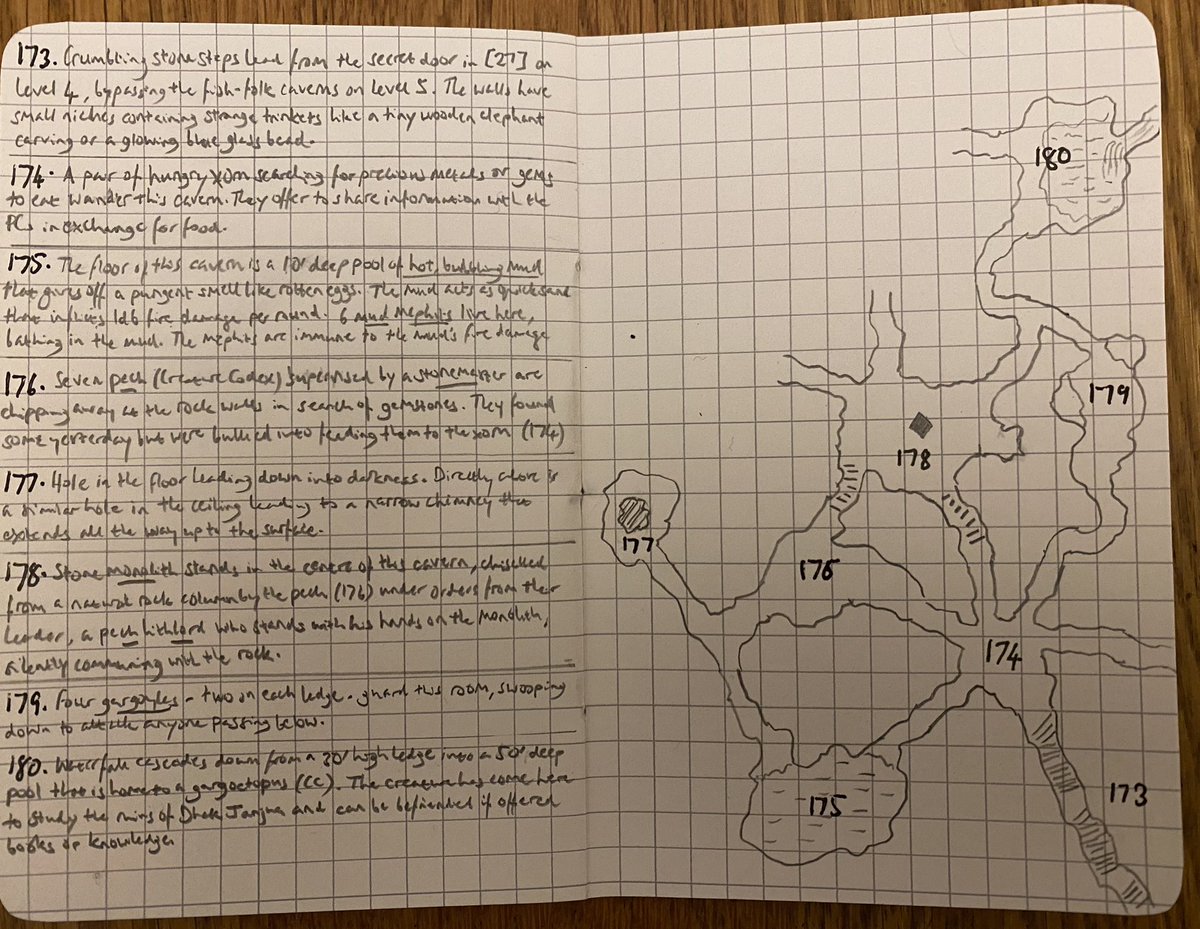 173. Crumbling stone steps lead from the secret door in [27] on
level 4, bypassing the fish-folk caverns on level 5. The walls have
small niches containing strange trinkets like a tiny wooden elephant
carving or a glowing blue glass bead.
174. A pair of hungry xorn searching for precious metals or gems
to eat wander this cavern. They offer to share information with the
PCs in exchange for food.
175. The floor of this cavern is a 10' deep pool of hot, bubbling mud
that gives off a pungent smell like rotten eggs. The mud acts as quicksand
that inflicts 1d6 fire damage per round. 6 mud mephits live here,
bathing in the mud. The mephits are immune to the mud's fire damage
176. Seven pech (Creature Codex) supervised by a stonemaster are
chipping away at the rock walls in search of gemstones. They found
some yesterday but were bullied into feeding them to the xorn (174)
177. Hole in the floor leading down into darkness. Directly above is
a similar hole in the ceiling leading to a narrow chimney that
extends all the way up to the surface.
178. Stone monolith stands in the centre of this cavern, chiselled
from a natural rock column by the pech (176) under orders from their
leader, a pech lithlord who stands with his hands on the monolith,
silently communing with the rock.
179. Four gargoyles - two on each ledge - guard this room, swooping
down to attack anyone passing below.
180. Waterfall cascades down from a 20' high ledge into a 50' deep
pool that is home to a gargoctopus (CC). The creature has come here
to study the ruins of Dhak and can be befriended if offered
books or knowledge.
180
179
178
177
176
174
175
173